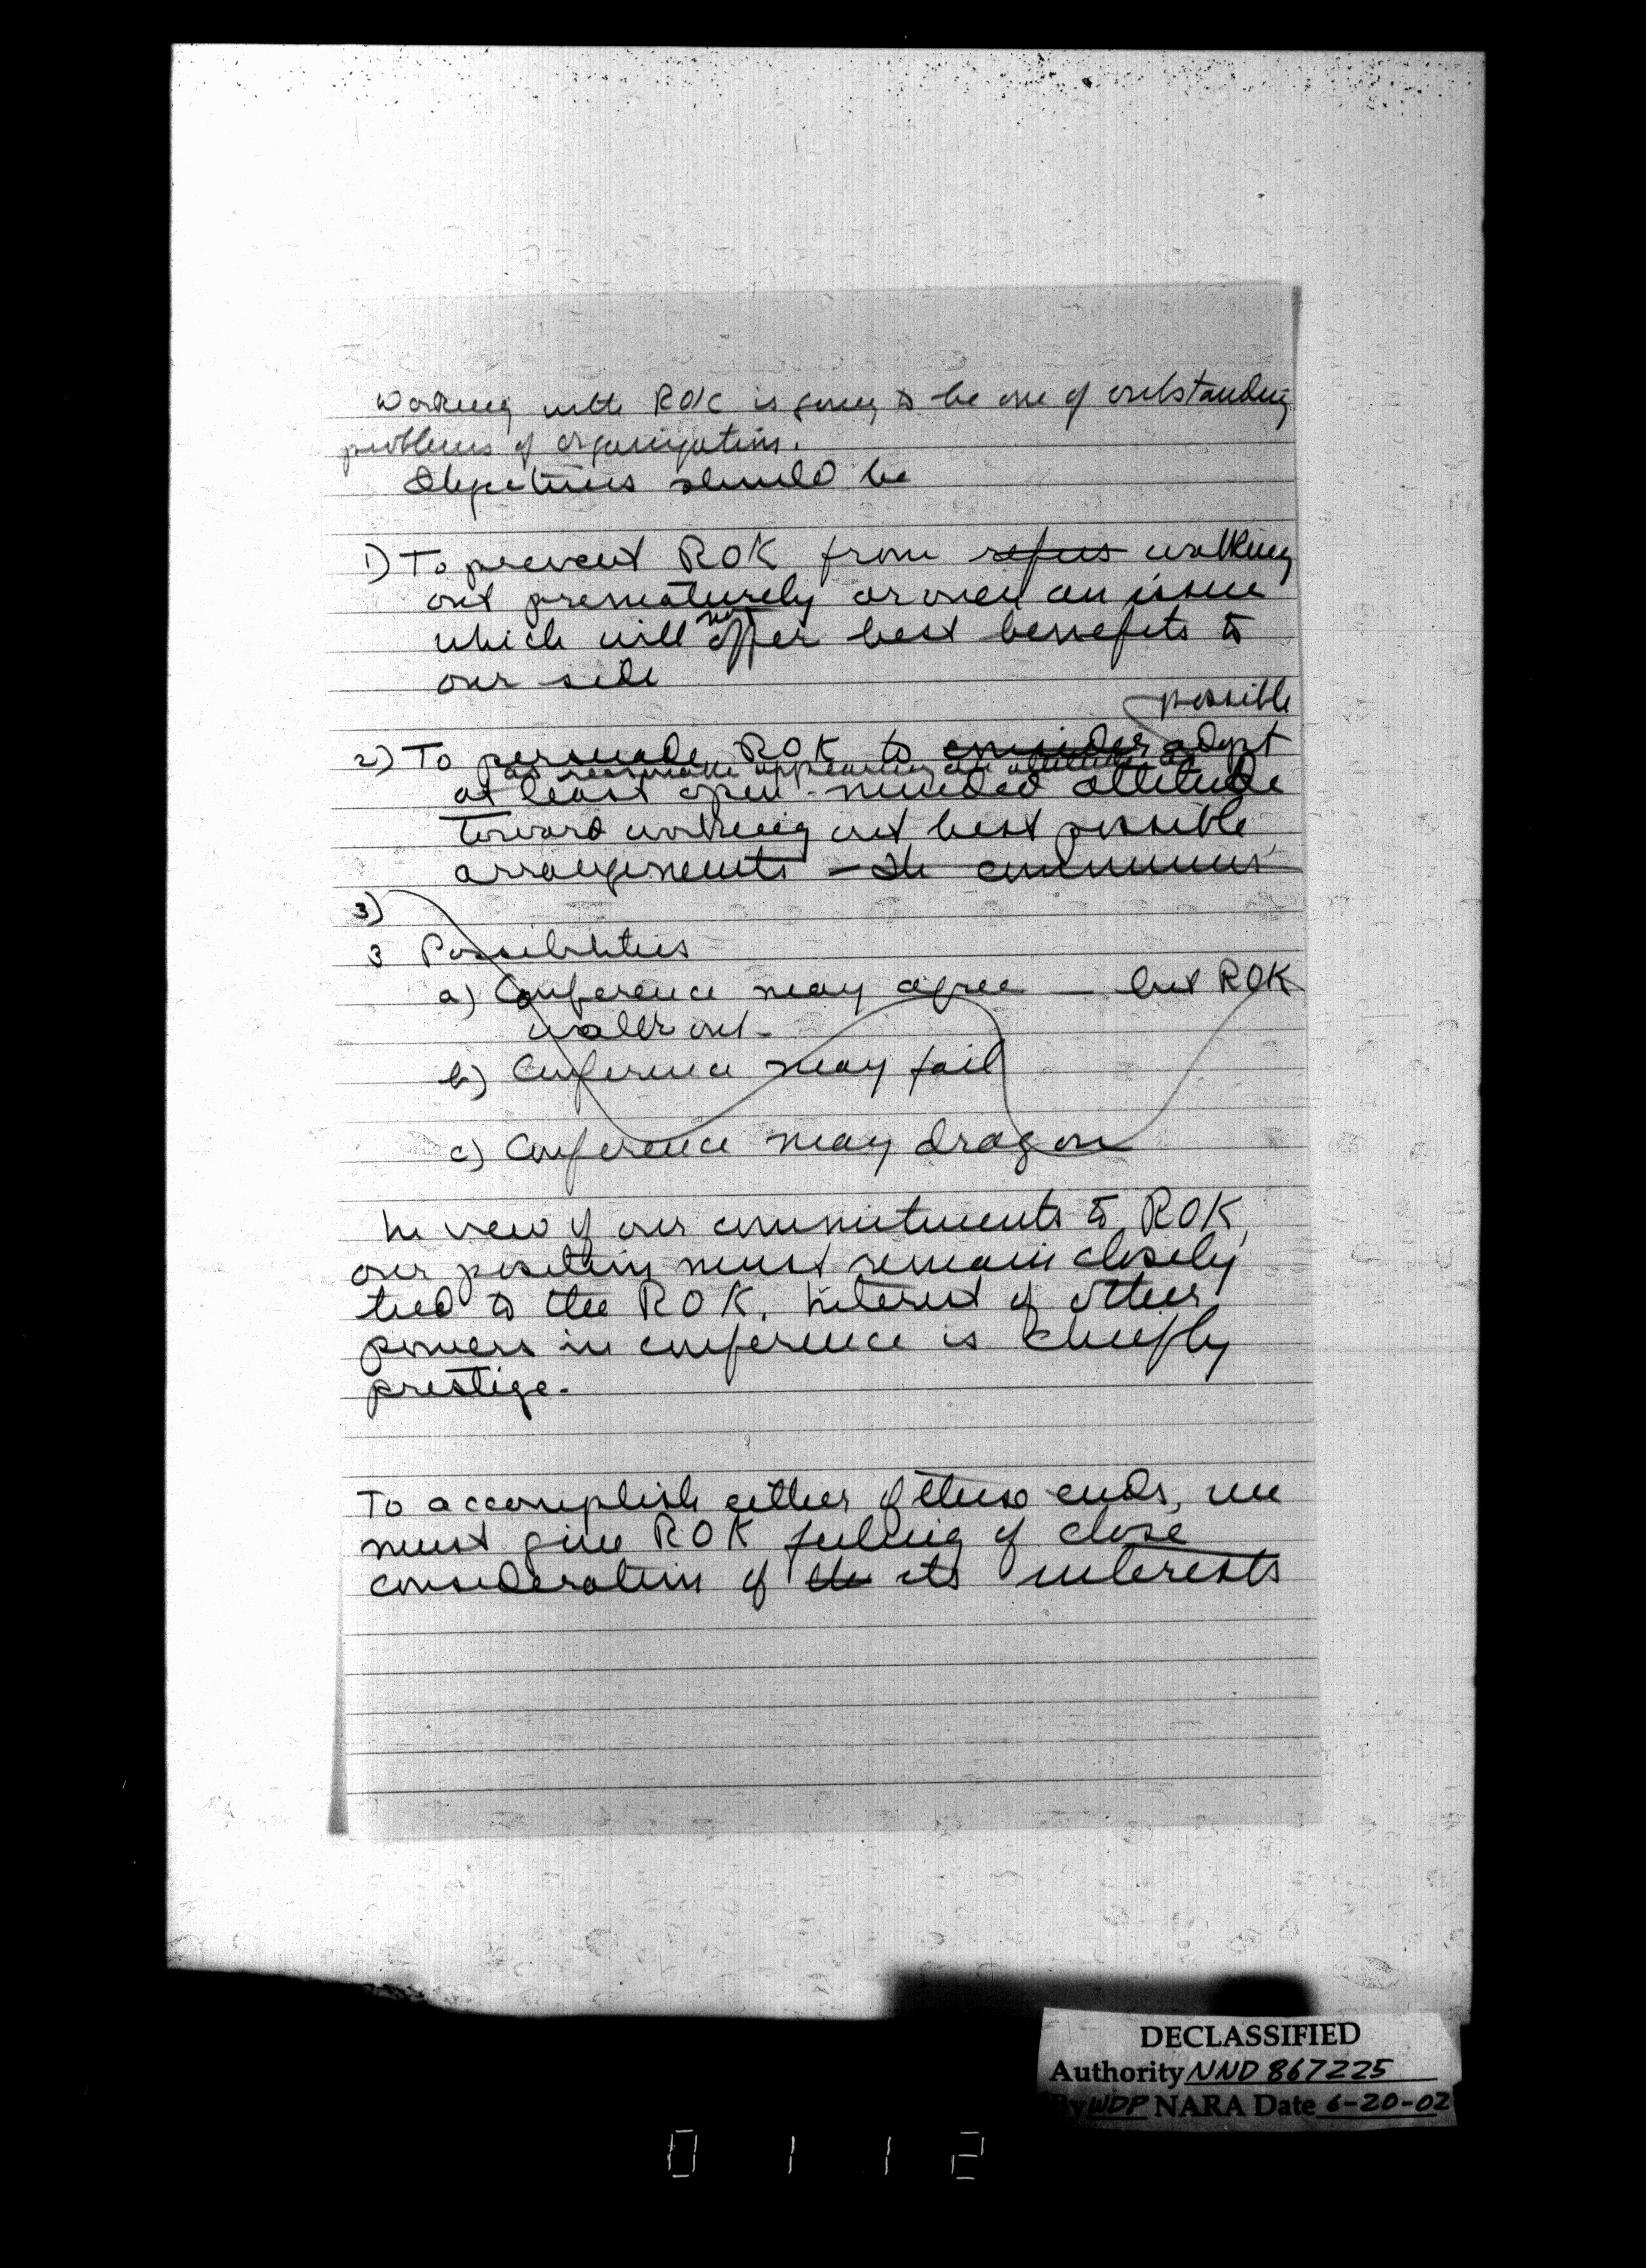 Working with ROK is going to be one of outstanding
problems of organization.
Objectives should be
1) To prevent ROK from refus walking
out prematurely or over an issue
which will not offer best benefits to
our side
possible
2) To persuade ROK to consider adopt
as reasonable appearing an attitude as
at least open-minded attitude
toward working out best possible
arrangements – the
3)
3 Possibilities
a) Conference may agree — but ROK
walk out.
b) Conference may fail
c) Conference may drag on
In view of our commitments to ROK,
our position must remain closely
tied to the ROK. Interest of other
powers in conference is chiefly
prestige.
To accomplish either of these ends, we
must give ROK feeling of close
consideration of the its interests
DECLASSIFIED
Authority NND 867225
By WDP NARA Date 6-20-02
0 1 1 2